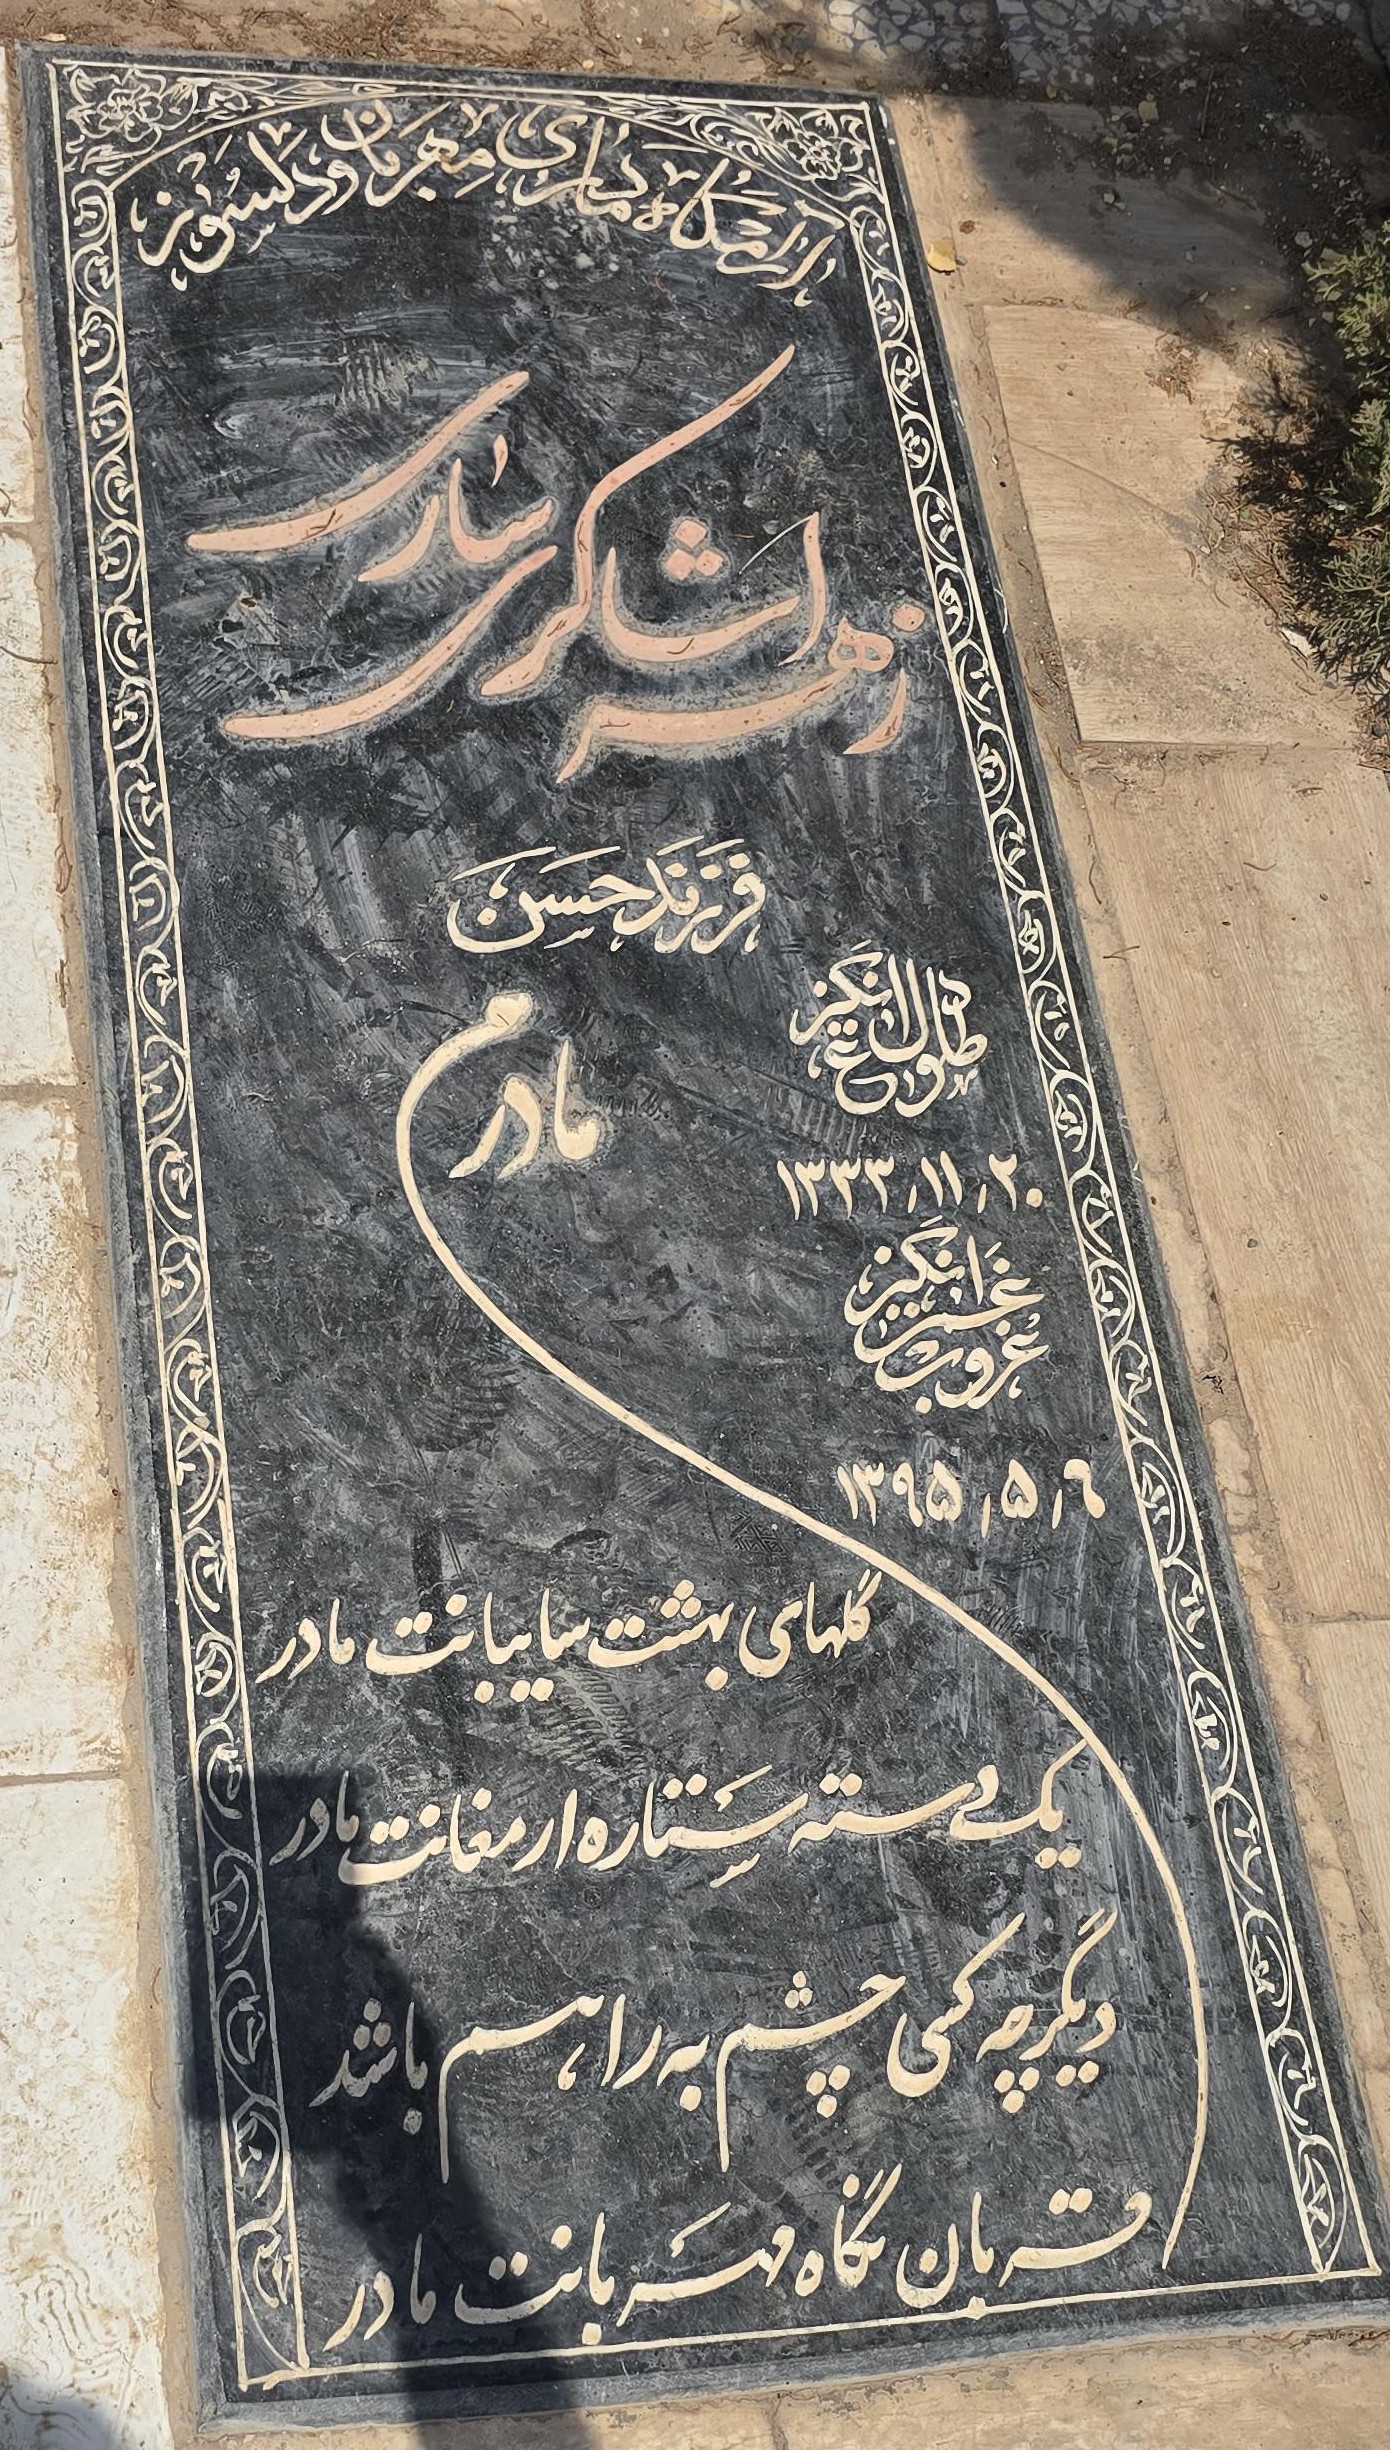 آرامگاه مادری مهربان و دلسوز
زهرا شاکری
ساری
فرزند حسن
مادرم
طلوع دل انگیز
۱۳۳۳٫۱۱٫۲۰
غروب غم انگیز
۱۳۹۵٫۵٫۶
گلهای بهشت سایبانت مادر
یک دسته ستاره ارمغانت مادر
دیگر چه کسی چشم به راهم باشد
قربان نگاه مهربانت مادر